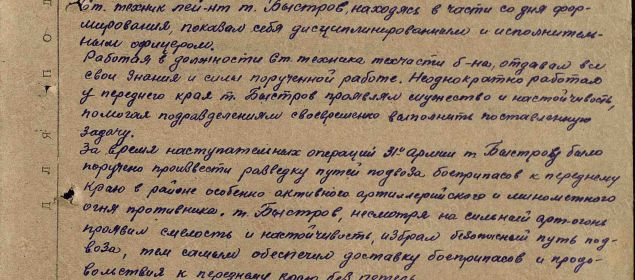 Ст. техник лей-нт т. Быстров, находясь в части со дня фор-
мирования, показал себя дисциплинированным и исполнитель-
ным офицером.
Работая в должности ст. техника техчасти б-на, отдавал все
свои знания и силы порученной работе. Неоднократно работал
у переднего края т. Быстров проявлял мужество и настойчивость,
помогая подразделениям своевременно выполнить поставленную
задачу.
За время наступательных операций 31й Армии т. Быстрову было
поручено произвести разведку путей подвоза боеприпасов к переднему
краю в районе особенно активного артиллерийского и минометного
огня противника. т. Быстров, несмотря на сильный арт-огонь
проявил смелость и настойчивость, избрал безопасный путь под-
воза, тем самым обеспечил доставку боеприпасов и продо-
вольствия к переднему краю без потерь.
ДЛЯ ПОД